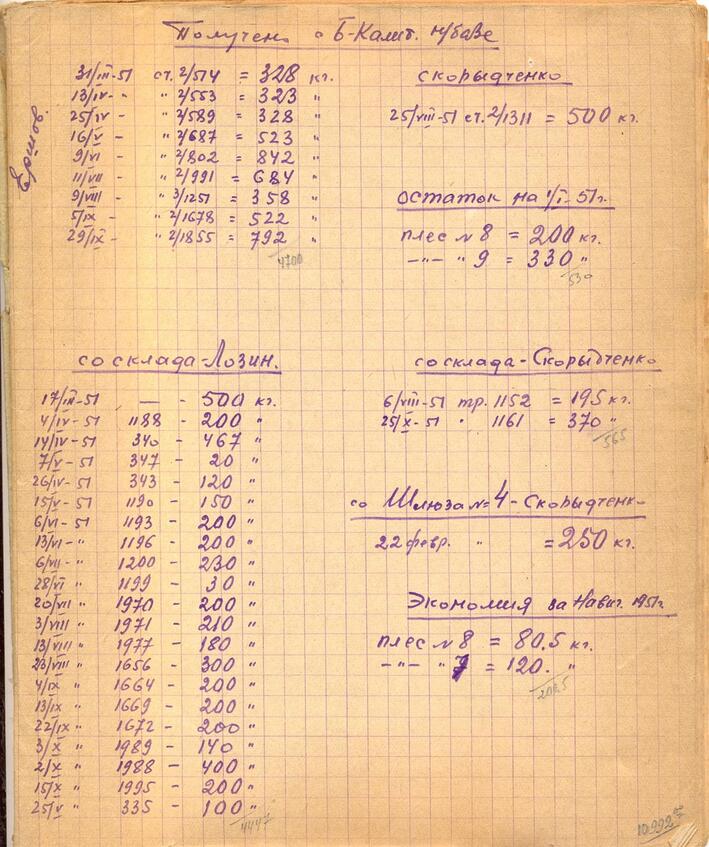 Получено с Б-Калит. н/базе
Ершов.
31/III-51 ст. 2/514 = 328 кг.
13/IV- " " 2/553 = 323 "
25/IV - " 2/589 = 328 "
16/V - " 2/687 = 523 "
9/VI - " 2/802 = 842 "
11/VII - " 2/991 = 684 "
9/VIII - " 3/1251 = 358 "
5/IX - " 2/1678 = 522 "
29/IX - " 2/1855 = 792 "
4700
Скорыдченко
25/VIII-51 ст. 2/1311 = 500 кг.
Остаток на 1/I-51г.
плес №8 = 200 кг.
-"- " 9 = 330 "
530
со склада-Лозин.
17/III-51 — - 500 кг.
4/IV-51 1188 - 200 "
14/IV-51 340 - 467 "
7/V-51 347 - 20 "
26/IV-51 343 - 120 "
15/V-51 1190 - 150 "
6/VI-51 1193 - 200 "
13/VI- " 1196 - 200 "
6/VII- " 1200 - 230 "
28/VI " 1199 - 30 "
20/VII " 1970 - 200 "
3/VIII " 1971 - 210 "
13/VIII " 1977 - 180 "
23/VIII " 1656 - 300 "
4/IX " 1664 - 200 "
13/IX " 1669 - 200 "
22/IX " 1672 - 200 "
3/X " 1989 - 140 "
2/X " 1988 - 400 "
15/X " 1995 - 200 "
25/V " 335 - 100 "
4447
со склада-Скорыдченко
6/VIII-51 тр. 1152 = 195 кг.
25/X-51 " 1161 = 370 "
565
со Шлюза №4-Скорыдченко
22 февр. " = 250 кг.
Экономия за навиг. 1951г.
плес №8 = 80.5 кг.
-"- " 7 = 120. "
10.992